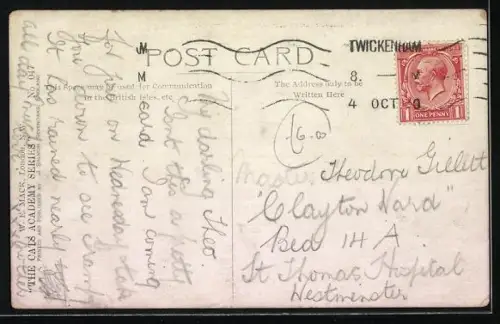 POST CARD
This space may be used for Communication
in the British Isles, etc.
The Address only to be
Written Here
TWICKENHAM
8. –
4 OCT 20
ONE PENNY
My darling Theo.
Isn't this a pretty
card I am coming
for you on Wednesday to take
you down to see Granpy
It has rained nearly
all day
W. E. MACK, London,
"THE CATS ACADEMY SERIES"
6.00
Master
Theodore Gillett
"Clayton Ward"
Bed 14 A
St Thomas Hospital
Westminster